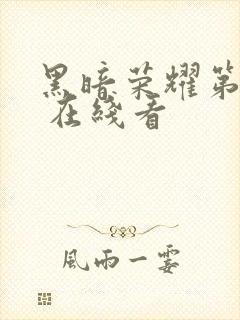 黑暗荣耀第
在线看
風雨一霎